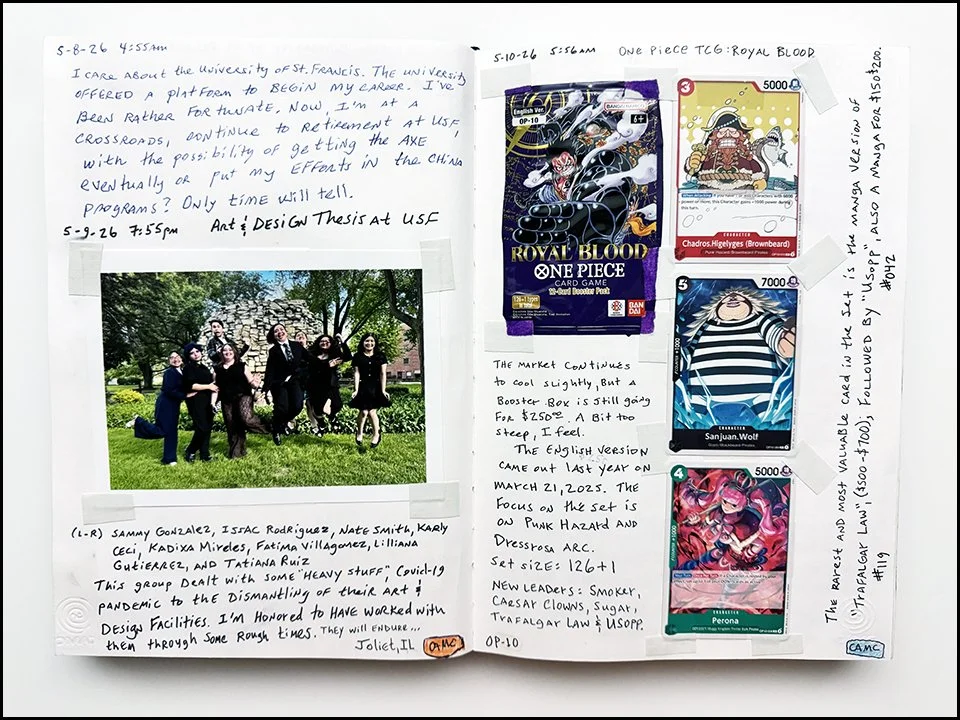 5-8-26 4:55am
I care about the University of St. Francis. The university
offered a platform to begin my career. I've
been rather fortunate. Now, I'm at a
crossroads, continue to retirement at USF,
with the possibility of getting the axe
eventually or put my efforts in the China
programs? Only time will tell.
5-9-26 7:55pm Art & Design Thesis at USF
(L-R) Sammy Gonzalez, Isaac Rodriguez, Nate Smith, Karly
Ceci, Kadixa Mireles, Fatima Villagomez, Lilliana
Gutierrez, and Tatiana Ruiz
This group dealt with some "heavy stuff", Covid-19
pandemic to the dismantling of their Art &
Design Facilities. I'm honored to have worked with
them through some rough times. They will endure...
Joliet, IL CAMC
5-10-26 5:56am One Piece TCG: Royal Blood
English Ver.
OP-10
BANDAI NAMCO
6+
ROYAL BLOOD
ONE PIECE
CARD GAME
12-Card Booster Pack
126+1 types
in total
BAN
DAI
3 5000
CHARACTER
Chadros.Higelyges (Brownbeard)
Punk Hazard/Brownbeard Pirates
5 7000
Counter +1000
CHARACTER
Sanjuan.Wolf
Giant/Blackbeard Pirates
4 5000
CHARACTER
Perona
The market continues
to cool slightly, but a
Booster Box is still going
for $250.00. A bit too
steep, I feel.
The English version
came out last year on
March 21, 2025. The
focus on the set is
on Punk Hazard and
Dressrosa Arc.
Set size: 126+1
New leaders: Smoker,
Caesar Clowns, Sugar,
Trafalgar Law & Usopp.
OP-10
The rarest and most valuable card in the set is the manga version of
"Trafalgar Law", ($500-$700), followed by "Usopp", also a manga for $150-$200.
#119 #042
CAMC